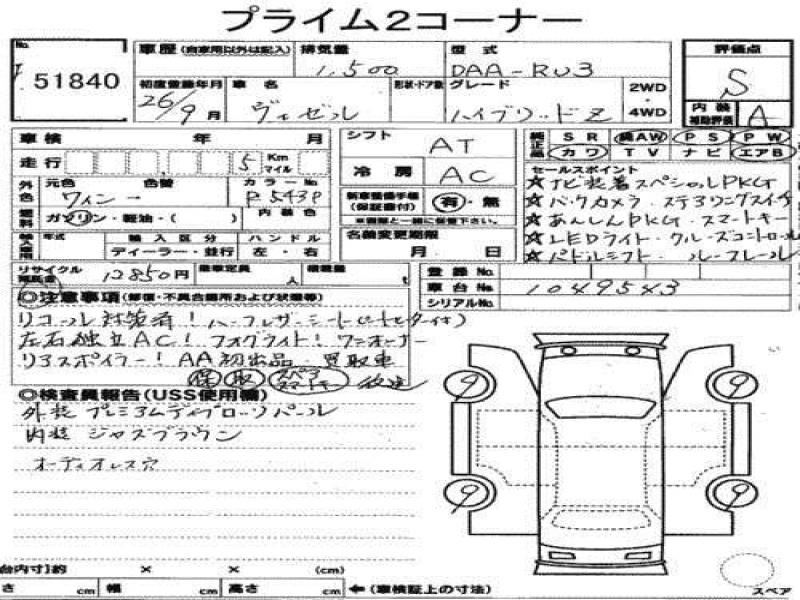 プライム2コーナー
No. 51840
車歴 (自家用以外は記入) 排気量 型式 評価点
1,500 DAA-RU3 S
初度登録年月 車名 形状・ドア数 グレード 2WD・4WD 内装補助評価 A
26/9月 ヴェゼル ハイブリッドZ
車検 年 月 シフト AT
純正品 SR 純AW PS PW
カワ TV ナビ エアB
走行 5 Km マイル 冷房 AC
セールスポイント
外色 元色 色替 カラーNo.
ワイン R543P
☆ナビ装着スペシャルPKG
新車整備手帳(保証書付) 有・無
☆バックカメラ・ステアリングスイッチ
※車両と一緒に保管下さい。
燃料 ガソリン・軽油・( ) 内装色
☆あんしんPKG スマートキー
年式 輸入区分 ハンドル 名義変更期限
☆LEDライト・クルーズコントロール
ディーラー・並行 左・右 月 日
☆パドルシフト ルーフレール
リサイクル預託金 12850円 乗車定員 人 積載量 t
登録No.
車台No. 1049543
シリアルNo.
◎注意事項(修復・不具合箇所および状態等)
リコール対策済!ハーフレザーシート(ヒーター付)
左右独立AC!フォグライト!ワンオーナー
リアスポイラー!AA初出品 買取車
保 取 スペア スマートキー 後送
◎検査員報告(USS使用欄)
外装 プレミアムディープロッソパール
内装 ジャズブラウン
オーディオレス穴
9 9
9 9
台内寸)約 × × (cm)
さ cm 幅 cm 高さ cm ←(車検証上の寸法)
スペア